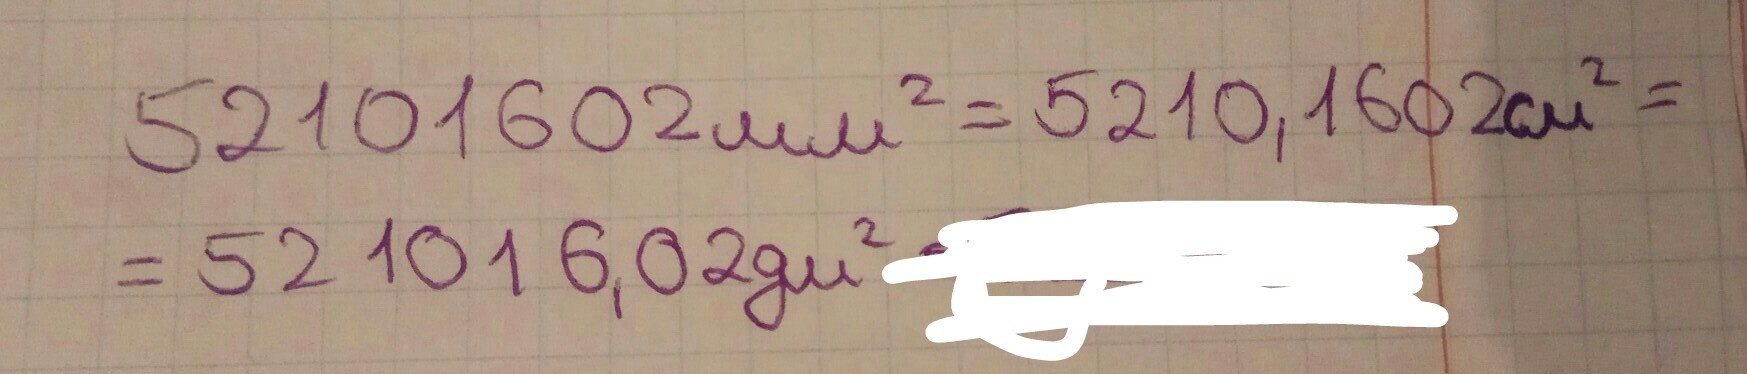 52101602мм² = 5210,1602см² =
= 521016,02дм²